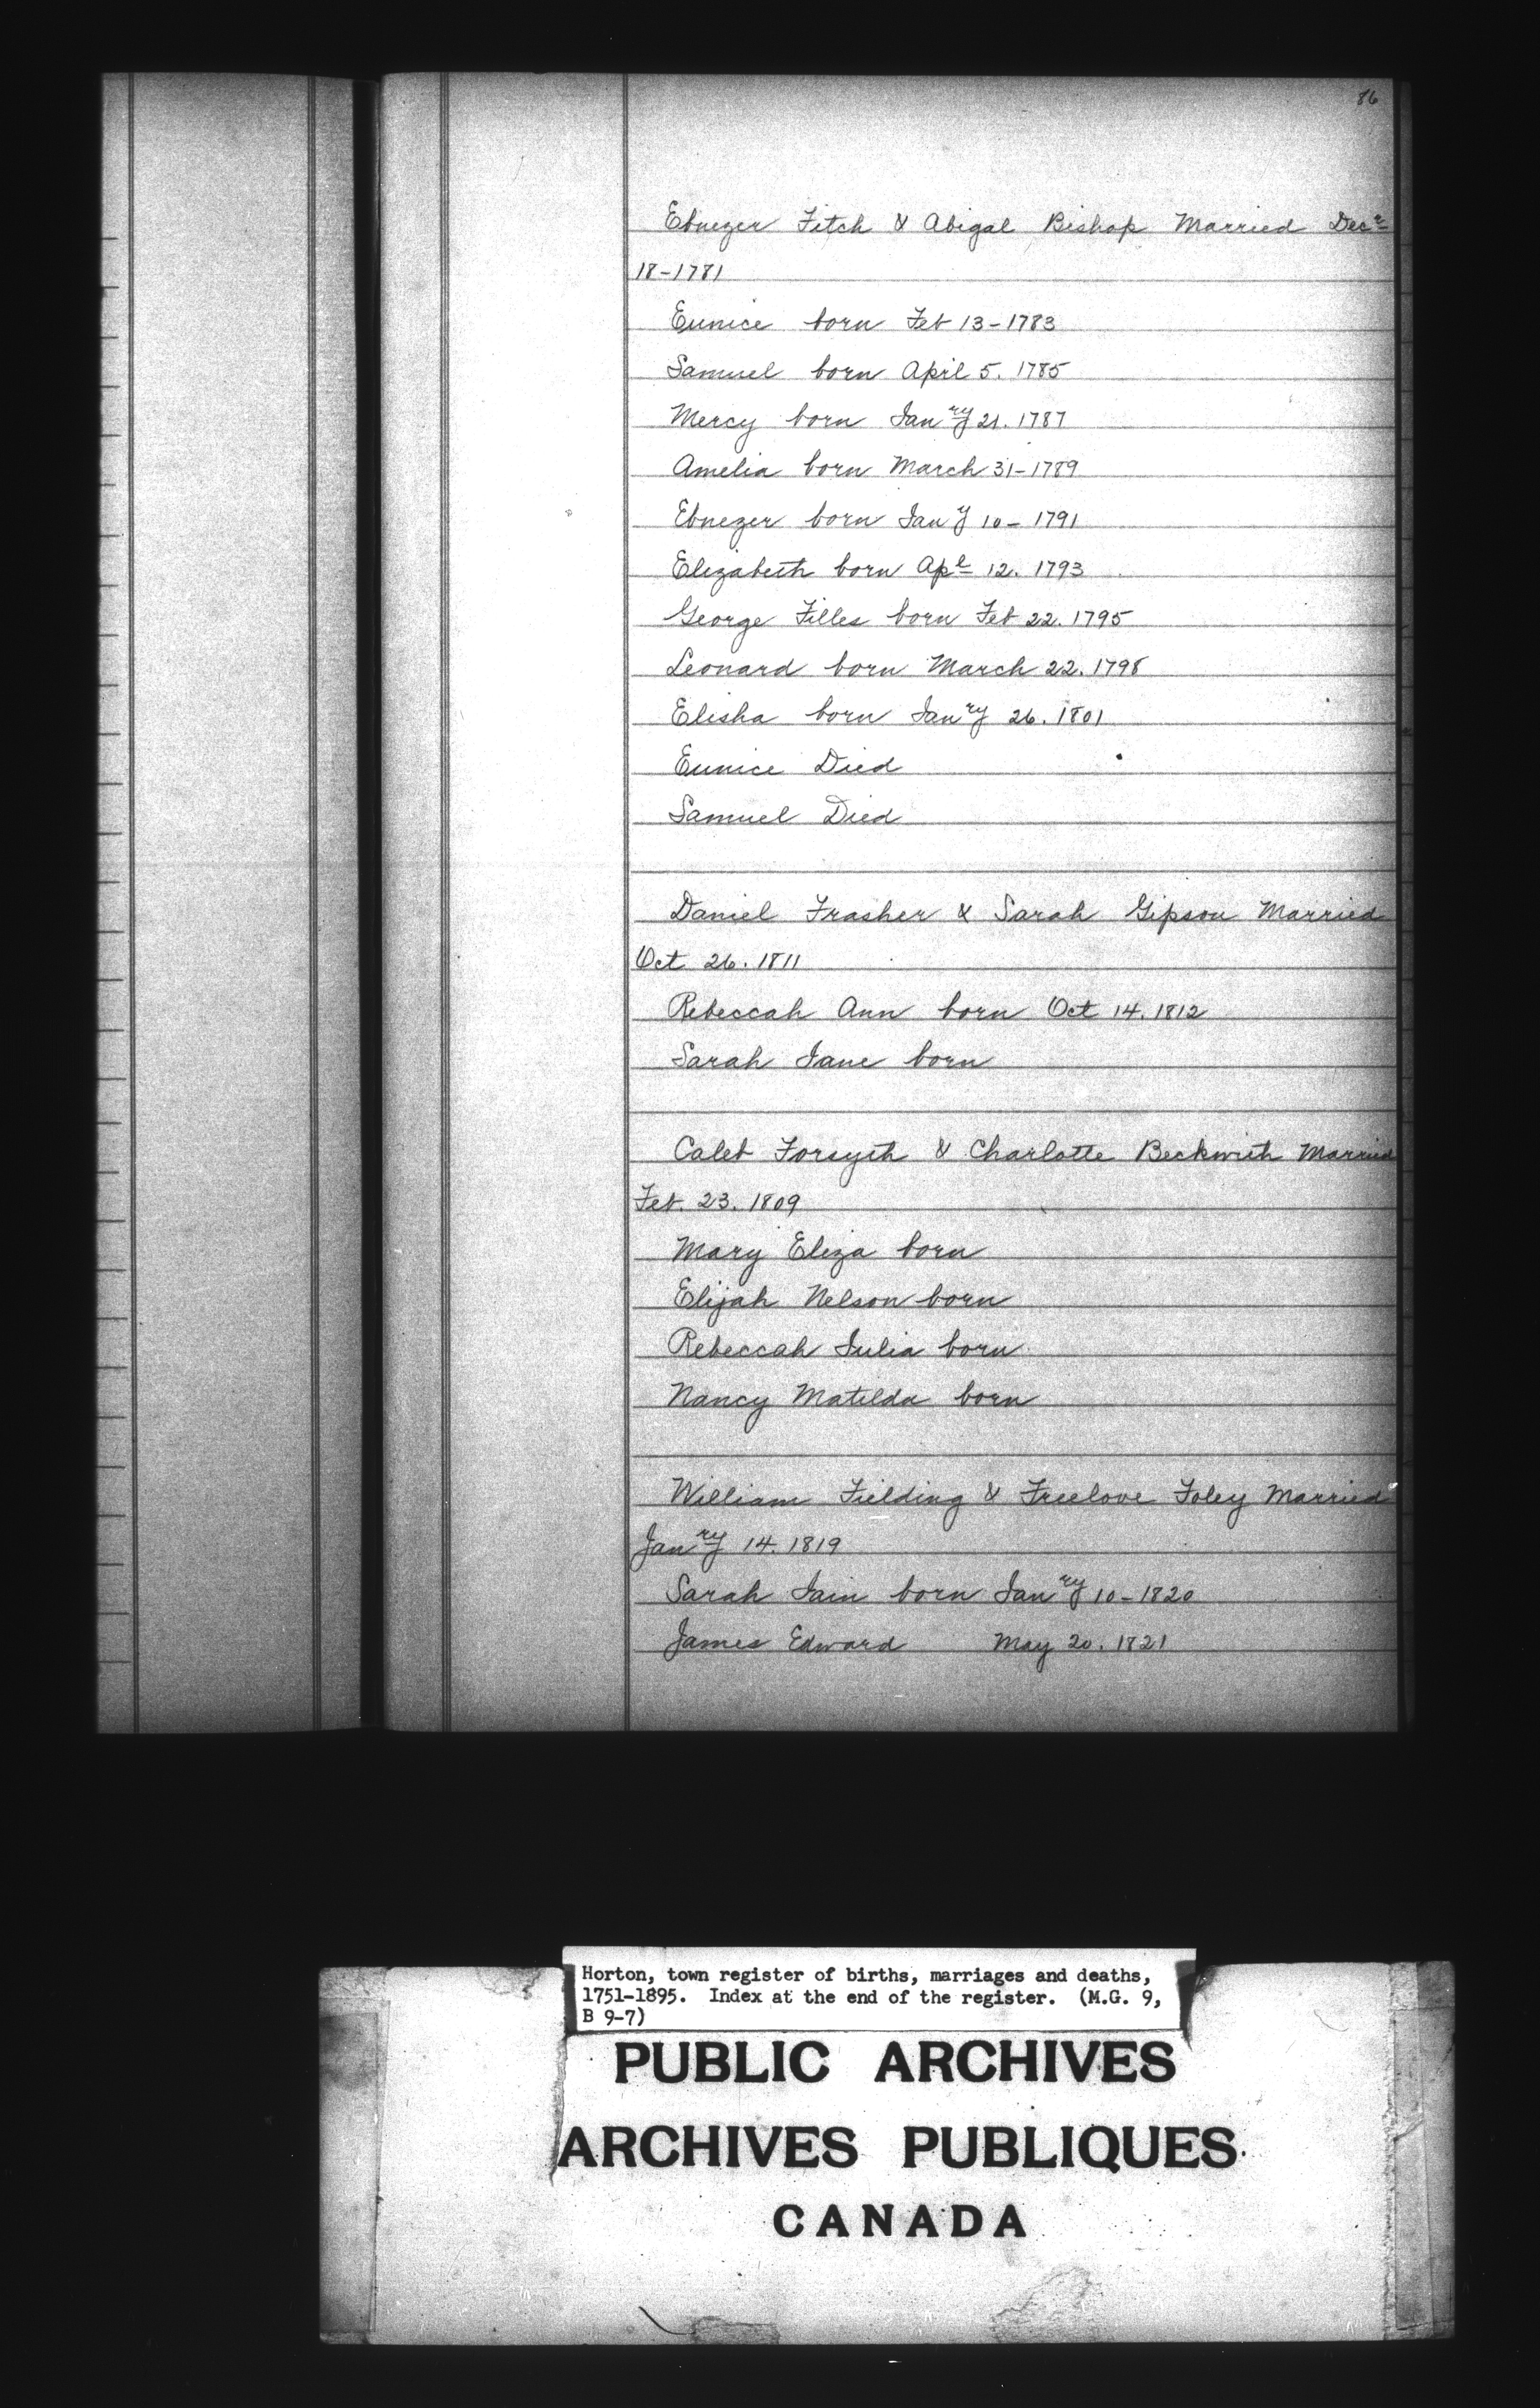 86
Ebnezer Fitch & Abigal Bishop Married Decr
18-1781
Eunice born Feb 13-1783
Samuel born April 5. 1785
Mercy born Janry 21. 1787
Amelia born March 31-1789
Ebnezer born Jany 10-1791
Elizabeth born Apl 12. 1793
George Filles born Feb 22. 1795
Leonard born March 22. 1798
Elisha born Janry 26. 1801
Eunice Died
Samuel Died
Daniel Frasher & Sarah Gipson Married
Oct 26. 1811
Rebeccah Ann born Oct 14. 1812
Sarah Jane born
Caleb Forsyth & Charlotte Beckwith Married
Feb. 23. 1809
Mary Eliza born
Elijah Nelson born
Rebeccah Julia born
Nancy Matilda born
William Fielding & Freelove Foley Married
Janry 14. 1819
Sarah Jain born Janry 10-1820
James Edward May 20. 1821
Horton, town register of births, marriages and deaths,
1751-1895. Index at the end of the register. (M.G. 9,
B 9-7)
PUBLIC ARCHIVES
ARCHIVES PUBLIQUES
CANADA